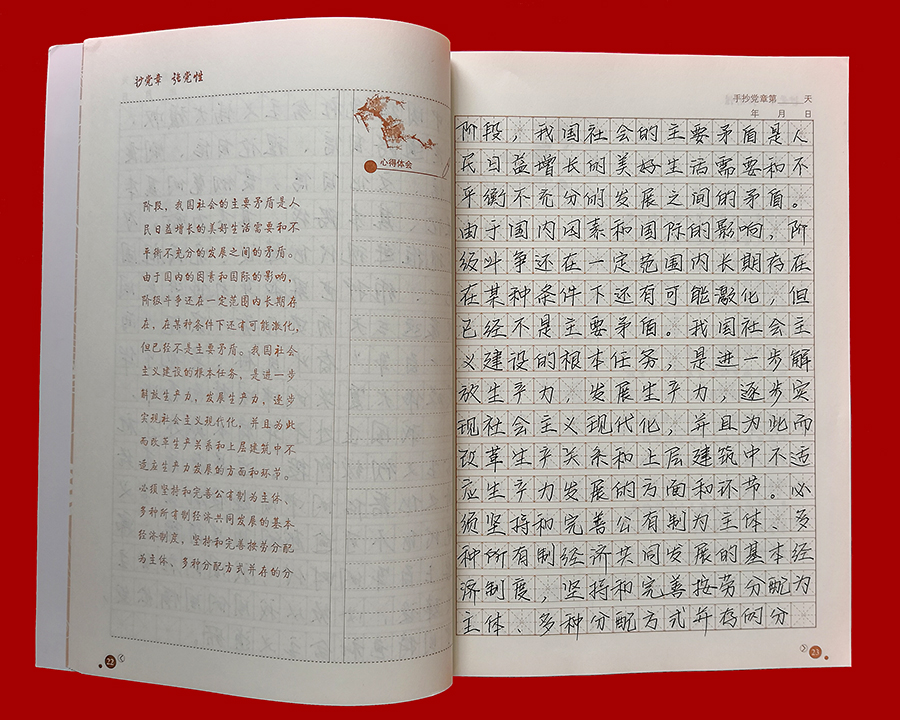 抄党章 强党性
心得体会
阶段，我国社会的主要矛盾是人
民日益增长的美好生活需要和不
平衡不充分的发展之间的矛盾。
由于国内的因素和国际的影响，
阶级斗争还在一定范围内长期存
在，在某种条件下还有可能激化，
但已经不是主要矛盾。我国社会
主义建设的根本任务，是进一步
解放生产力，发展生产力，逐步
实现社会主义现代化，并且为此
而改革生产关系和上层建筑中不
适应生产力发展的方面和环节。
必须坚持和完善公有制为主体、
多种所有制经济共同发展的基本
经济制度，坚持和完善按劳分配
为主体、多种分配方式并存的分
22
手抄党章第 天
年 月 日
阶段，我国社会的主要矛盾是人
民日益增长的美好生活需要和不
平衡不充分的发展之间的矛盾。
由于国内因素和国际的影响，阶
级斗争还在一定范围内长期存在
在某种条件下还有可能激化，但
已经不是主要矛盾。我国社会主
义建设的根本任务，是进一步解
放生产力，发展生产力，逐步实
现社会主义现代化，并且为此而
改革生产关系和上层建筑中不适
应生产力发展的方面和环节。必
须坚持和完善公有制为主体、多
种所有制经济共同发展的基本经
济制度，坚持和完善按劳分配为
主体、多种分配方式并存的分
23